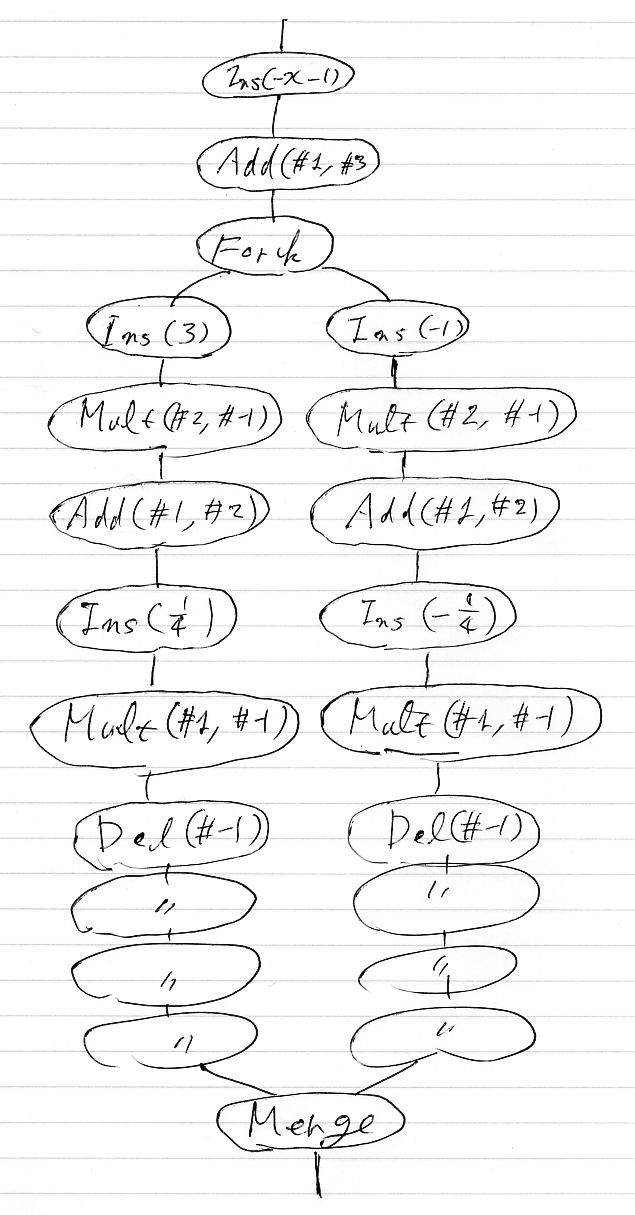 Ins(-x-1)
Add(#1, #3
Fork
Ins(3) Ins(-1)
Mult(#2, #-1) Mult(#2, #-1)
Add(#1, #2) Add(#1, #2)
Ins(1/4) Ins(-1/4)
Mult(#1, #-1) Mult(#1, #-1)
Del(#-1) Del(#-1)
" "
" "
" "
Merge